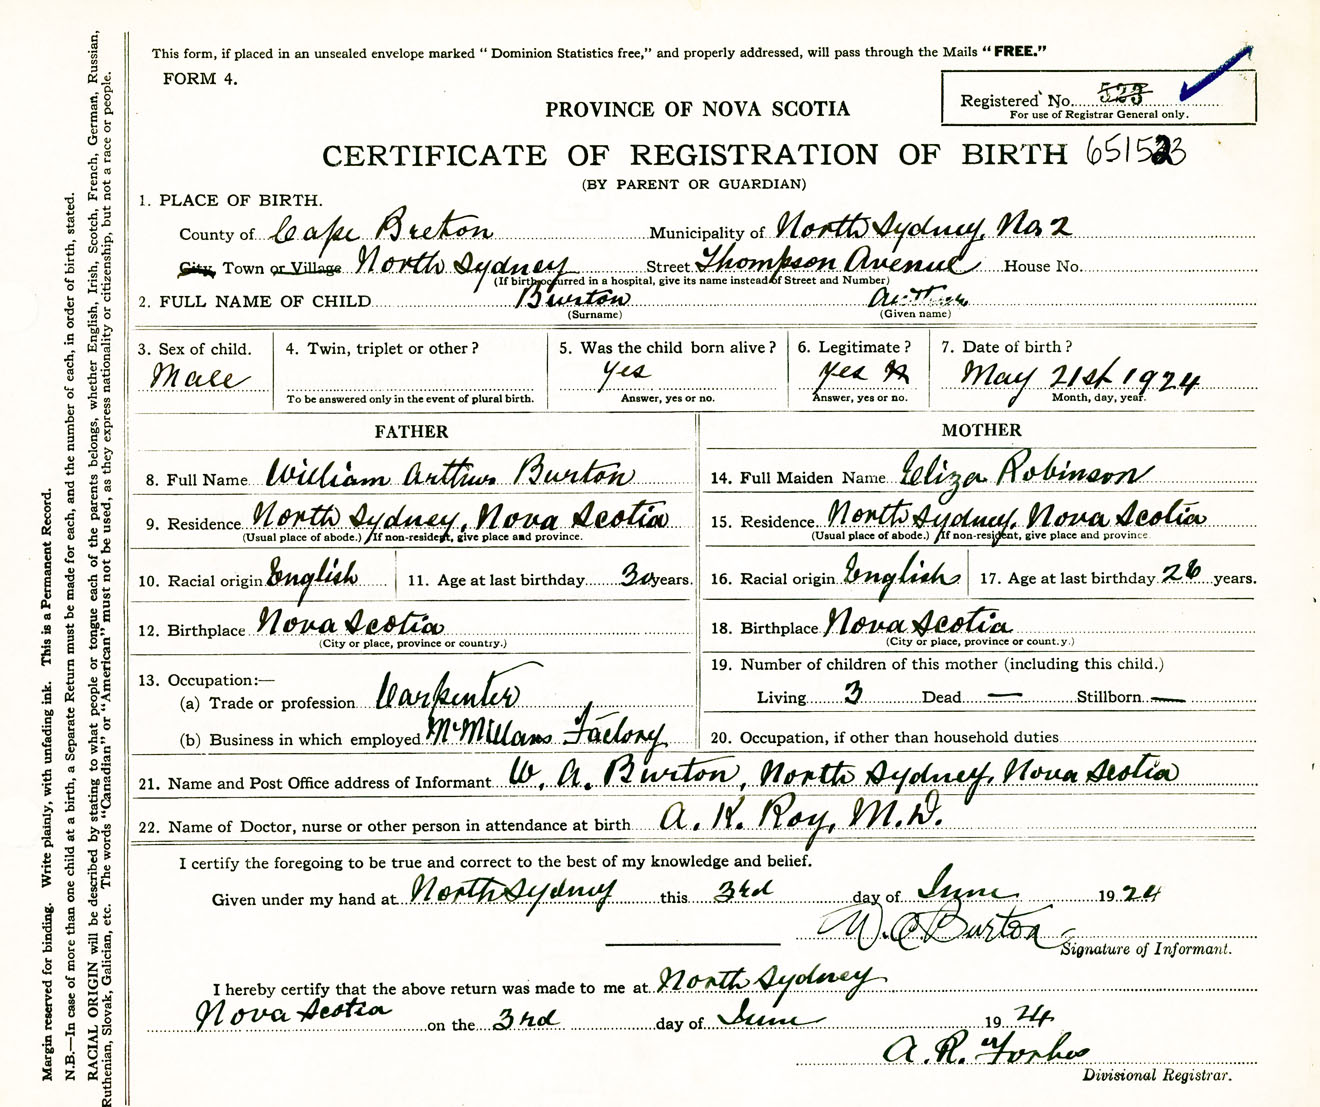 This form, if placed in an unsealed envelope marked “ Dominion Statistics free,” and properly addressed, will pass through the Mails “FREE.”
FORM 4.
Registered No. 523
For use of Registrar General only.
PROVINCE OF NOVA SCOTIA
CERTIFICATE OF REGISTRATION OF BIRTH 651523
(BY PARENT OR GUARDIAN)
1. PLACE OF BIRTH.
County of Cape Breton Municipality of North Sydney, No. 2
City, Town or Village North Sydney Street Thompson Avenue House No.
(If birth occurred in a hospital, give its name instead of Street and Number)
2. FULL NAME OF CHILD Burton Arthur
(Surname) (Given name)
3. Sex of child. 4. Twin, triplet or other? 5. Was the child born alive? 6. Legitimate? 7. Date of birth?
Male yes yes May 21st 1924
To be answered only in the event of plural birth. Answer, yes or no. Answer, yes or no. Month, day, year.
FATHER MOTHER
8. Full Name William Arthur Burton 14. Full Maiden Name Eliza Robinson
9. Residence North Sydney, Nova Scotia 15. Residence North Sydney, Nova Scotia
(Usual place of abode.) If non-resident, give place and province. (Usual place of abode.) If non-resident, give place and province
10. Racial origin English 11. Age at last birthday 30 years. 16. Racial origin English 17. Age at last birthday 26 years.
12. Birthplace Nova Scotia 18. Birthplace Nova Scotia
(City or place, province or country.) (City or place, province or count.y.)
19. Number of children of this mother (including this child.)
13. Occupation:—
(a) Trade or profession Carpenter Living 3 Dead — Stillborn —
(b) Business in which employed McMillans Factory 20. Occupation, if other than household duties
21. Name and Post Office address of Informant W. A. Burton, North Sydney, Nova Scotia
22. Name of Doctor, nurse or other person in attendance at birth A. K. Roy, M.D.
I certify the foregoing to be true and correct to the best of my knowledge and belief.
Given under my hand at North Sydney this 3rd day of June 1924
W. A. Burton
Signature of Informant.
I hereby certify that the above return was made to me at North Sydney
Nova Scotia on the 3rd day of June 1924
A. R. Forbes
Divisional Registrar.
Margin reserved for binding. Write plainly, with unfading ink. This is a Permanent Record.
N.B.—In case of more than one child at a birth, a Separate Return must be made for each, and the number of each, in order of birth, stated.
RACIAL ORIGIN will be described by stating to what people or tongue each of the parents belongs, whether English, Irish, Scotch, French, German, Russian,
Ruthenian, Slovak, Galician, etc. The words “Canadian” or “American” must not be used, as they express nationality or citizenship, but not a race or people.